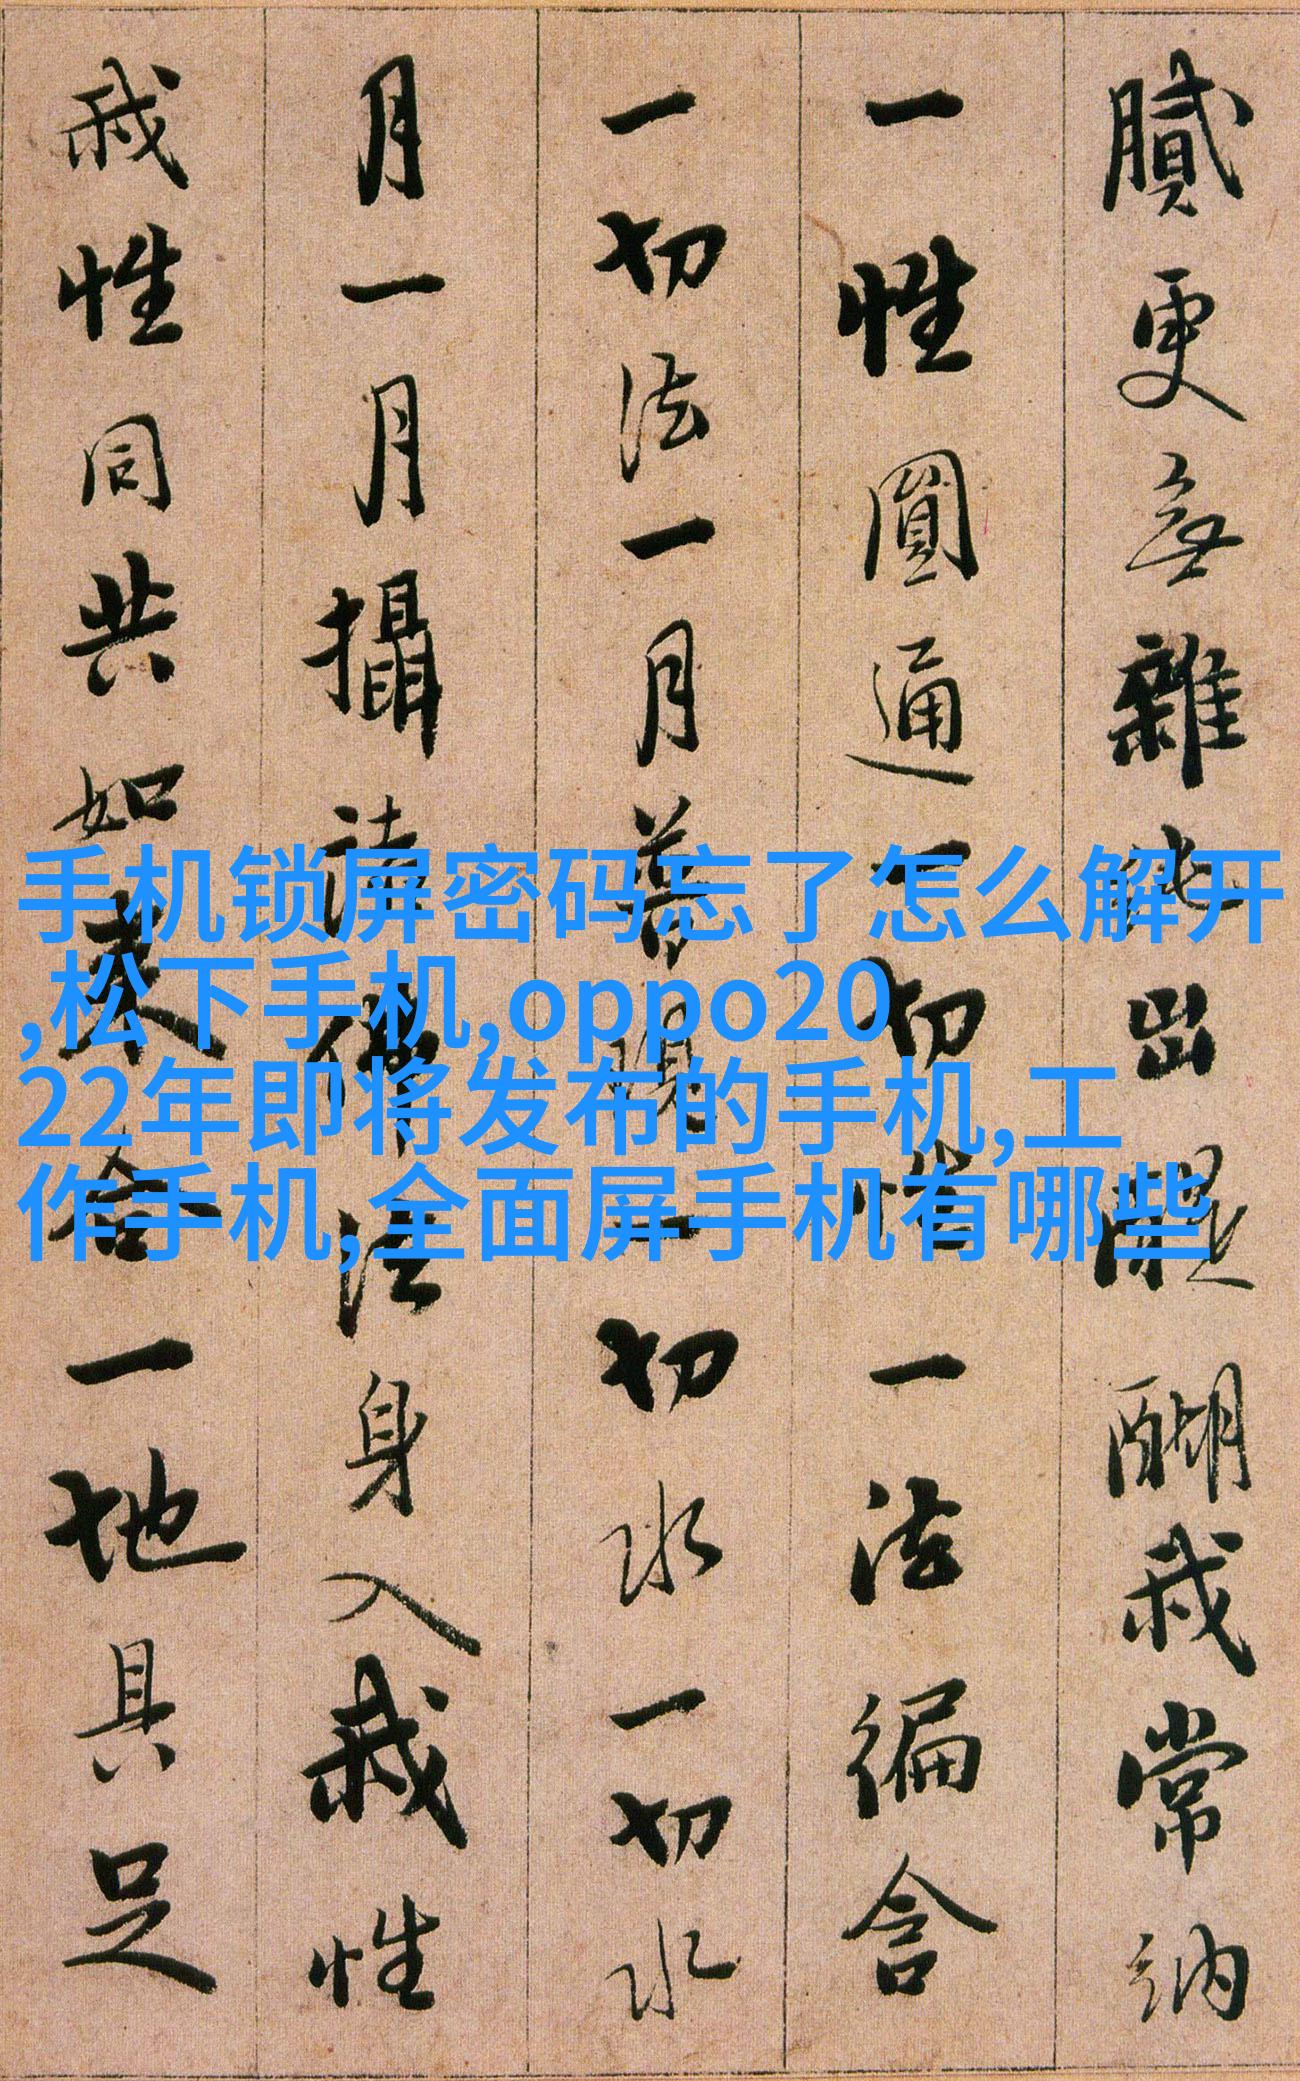 膩更無雜純出醍醐我常納
一性圓通一切性一法徧含
一切法一月普現一切水一切水
月一月攝諸佛法身入我性
我性同共如来合一地具足
手机锁屏密码忘了怎么解开
,松下手机,oppo20
22年即将发布的手机,工
作手机,全面屏手机有哪些